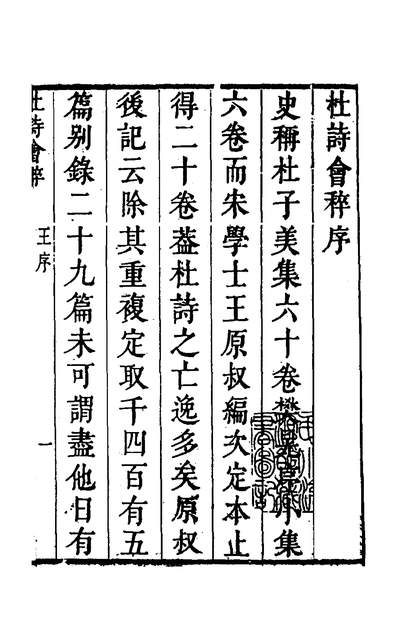 杜詩會稡序
史稱杜子美集六十卷樊晃小集
六卷而宋學士王原叔編次定本止
得二十卷葢杜詩之亡逸多矣原叔
後記云除其重複定取千四百有五
篇别錄二十九篇未可謂盡他日有
杜詩會稡
王序
一